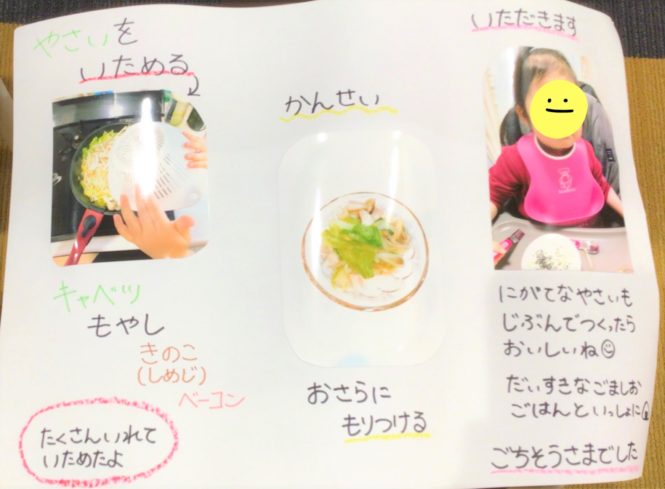 やさいを
いためる
キャベツ
もやし
きのこ
(しめじ)
ベーコン
たくさんいれて
いためたよ
かんせい
おさらに
もりつける
いただきます
にがてなやさいも
じぶんでつくったら
おいしいね
だいすきなごましお
ごはんといっしょに
ごちそうさまでした